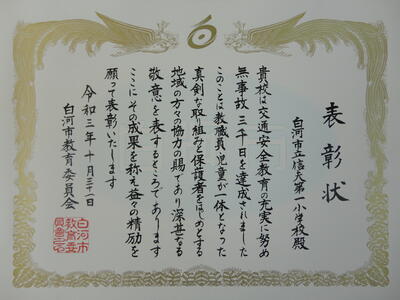 表彰状
白河市立信夫第一小学校殿
貴校は交通安全教育の充実に努め
無事故三千日を達成されました
このことは教職員、児童が一体となった
真剣な取り組みと保護者をはじめとする
地域の方々の協力の賜であり深甚なる
敬意を表するところであります
ここにその成果を称え益々の精励を
願って表彰いたします
令和三年十月三十一日
白河市教育委員会
白河市
教育委
員会之印